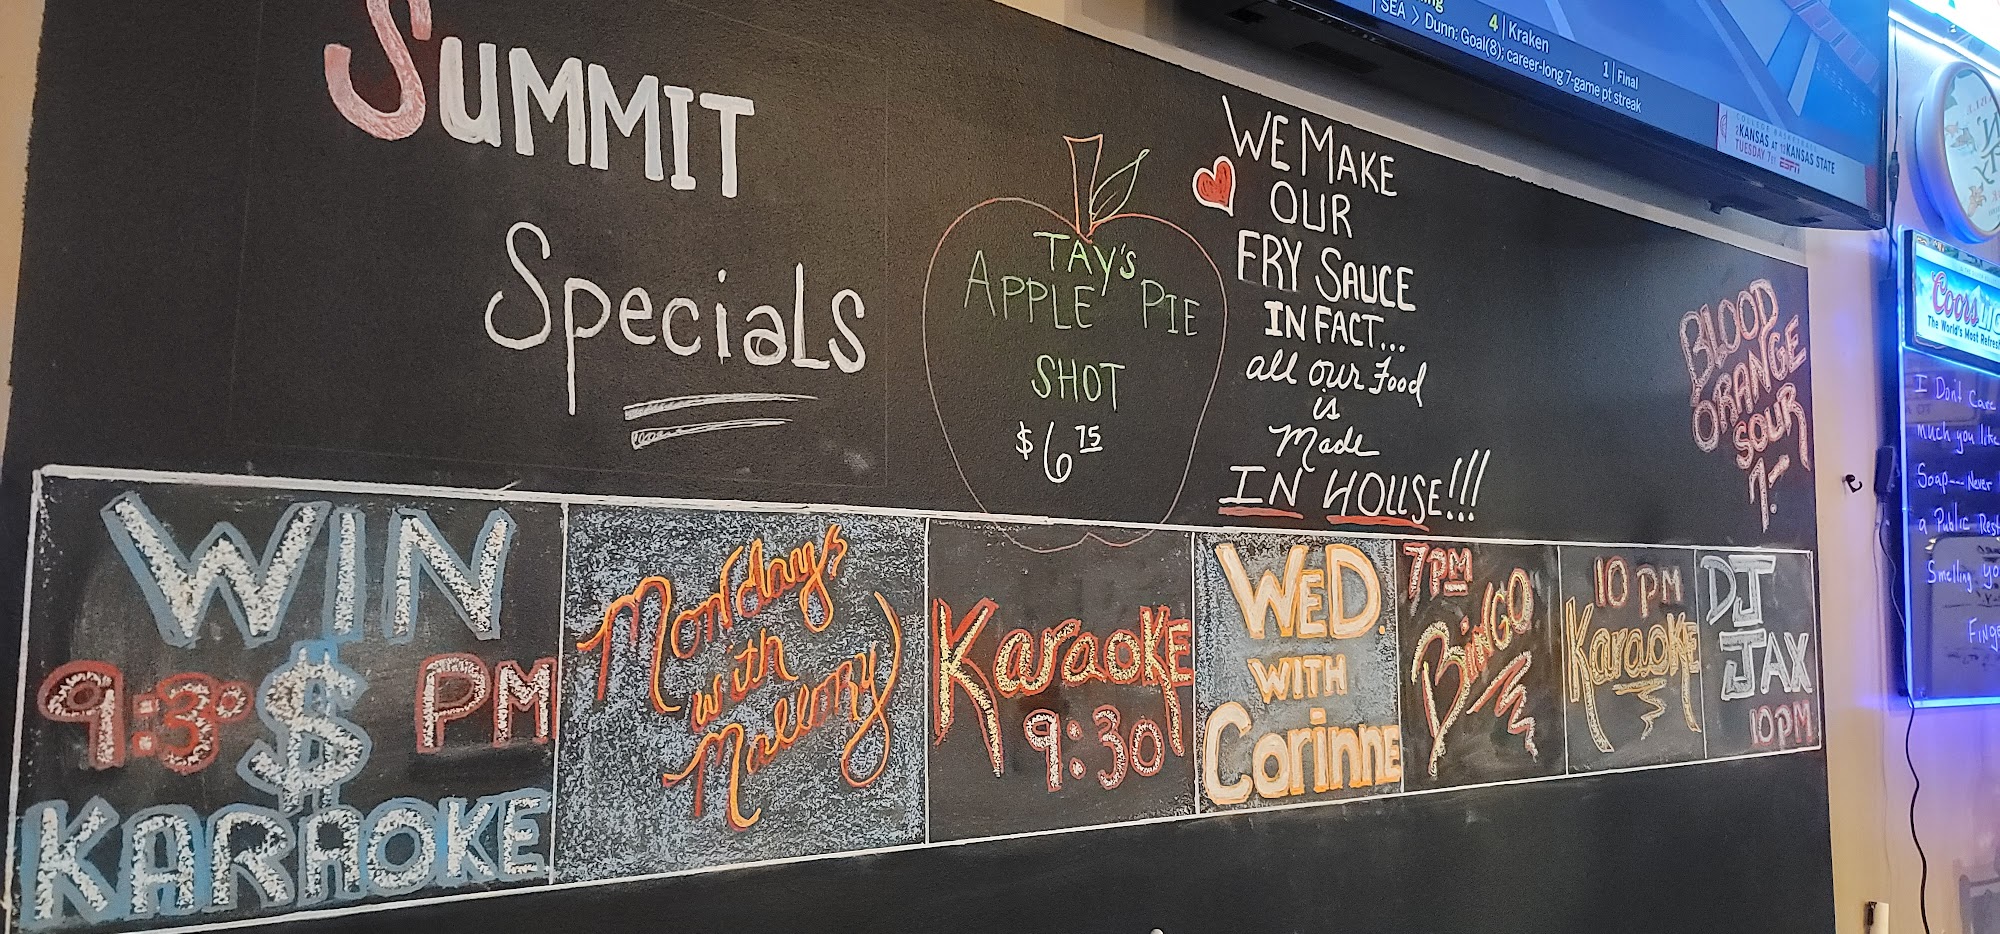 SUMMIT
SpeciaLS
TAY'S
APPLE PIE
SHOT
$6 75
WE MAKE
OUR
FRY SAUCE
IN FACT...
all our Food
is
Made
IN HOUSE!!!
BLOOD
ORANGE
SOUR
7-
WIN
$
9:30 PM
KARAOKE
Mondays
with
Mallory
KaraoKE
9:30
WED.
WITH
Corinne
7PM
BiNGO
10 PM
KaraoKE
DJ
JAX
10PM
4 | Kraken 1 | Final
SEA > Dunn: Goal(8); career-long 7-game pt streak
COLLEGE BASKETBALL
2KANSAS AT 13KANSAS STATE
TUESDAY 7ET ESPN
Coors
The World's Most Refres
I Don't Care
much you like
Soap--- Never
a Public Rest
Smelling yo
Finge